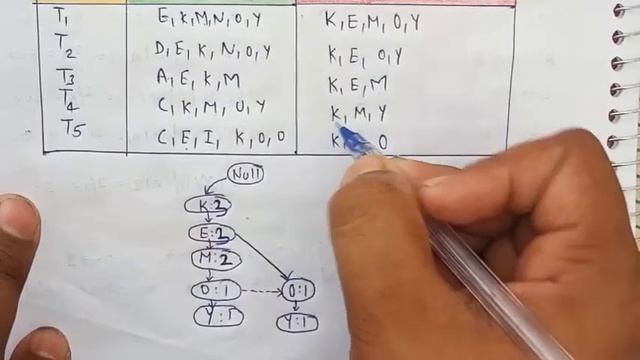 T1 E, K, M, N, O, Y K, E, M, O, Y
T2 D, E, K, N, O, Y K, E, O, Y
T3 A, E, K, M K, E, M
T4 C, K, M, U, Y K, M, Y
T5 C, E, I, K, O, O K O
Null
K:2
E:2
M:2
O:1 O:1
Y:1 Y:1